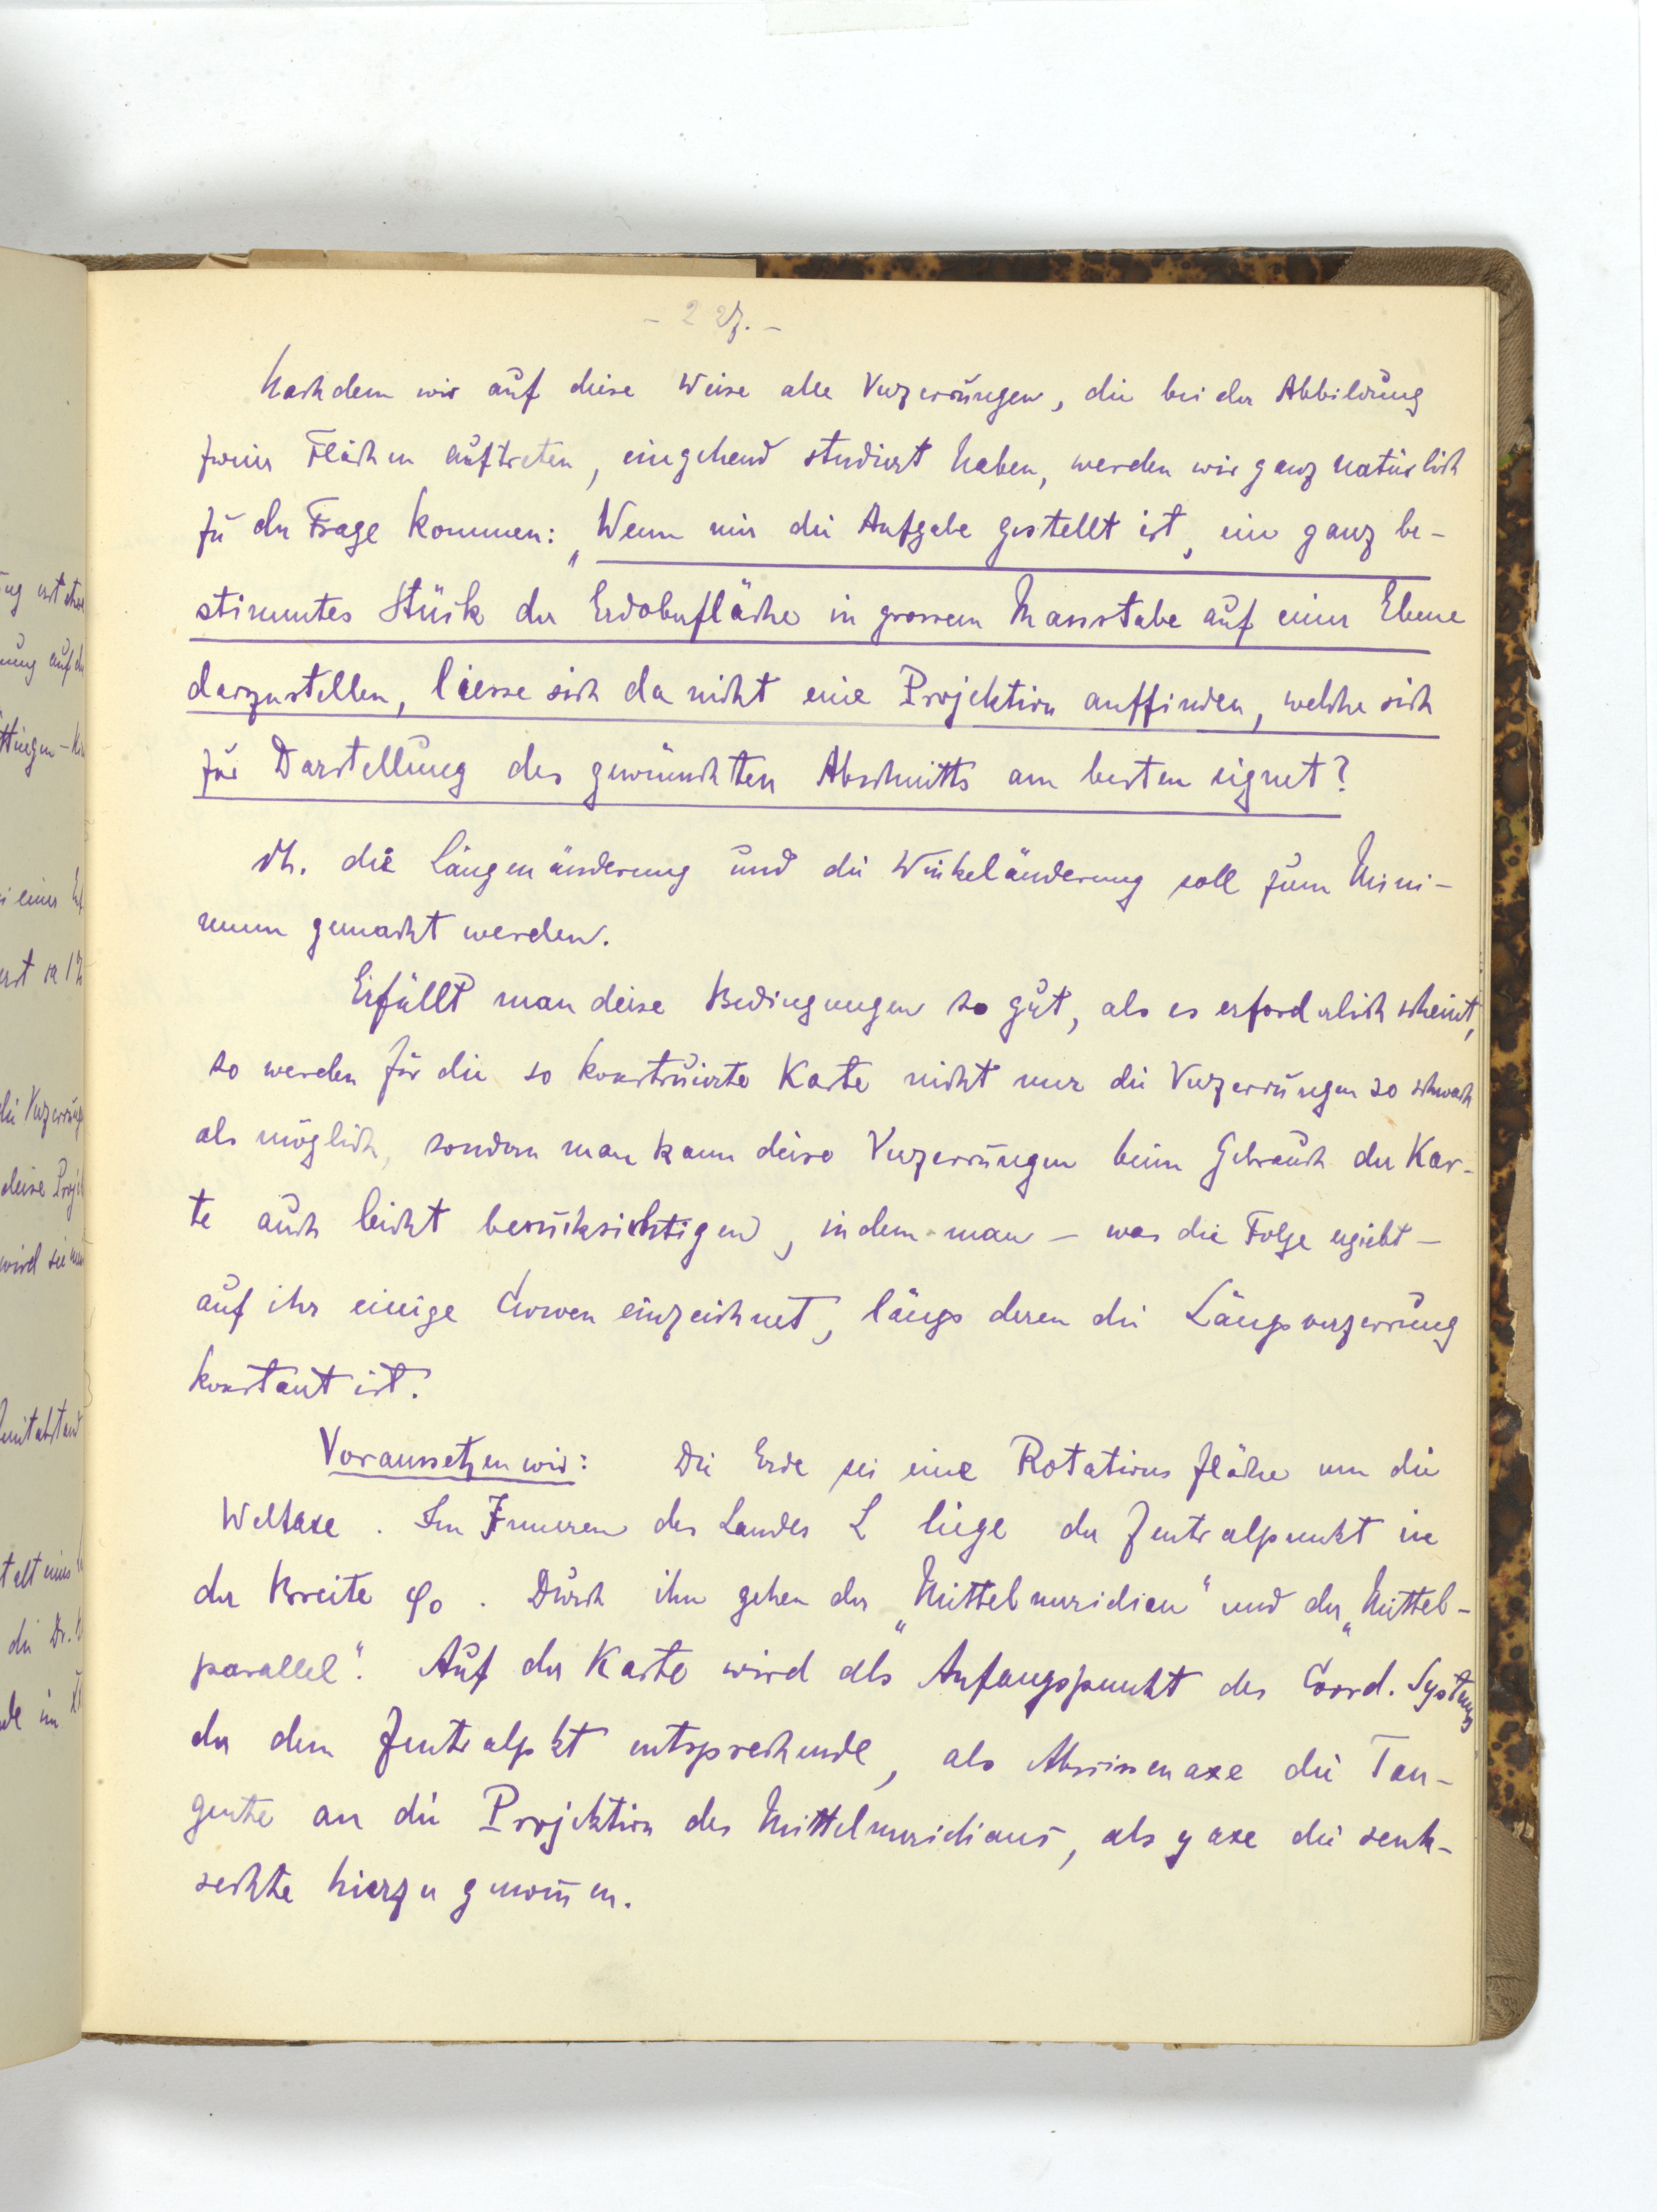 - 227. -
Nachdem wir auf diese Weise alle Verzerrungen, die bei der Abbildung
zweier Flächen auftreten, eingehend studiert haben, werden wir ganz natürlich
zu der Frage kommen: „Wenn mir die Aufgabe gestellt ist, ein ganz be-
stimmtes Stück der Erdoberfläche in grossem Massstabe auf einer Ebene
darzustellen, liesse sich da nicht eine Projektion auffinden, welche sich
zur Darstellung des gewünschten Abschnitts am besten eignet?
dh. die Längenänderung und die Winkeländerung soll zum Mini-
mum gemacht werden.
Erfüllt man diese Bedingungen so gut, als es erforderlich scheint,
so werden für die so konstruierte Karte nicht nur die Verzerrungen so schwach
als möglich, sondern man kann diese Verzerrungen beim Gebrauch der Kar-
te auch leicht berücksichtigen, indem man - was die Folge ergiebt -
auf ihr einige Curven einzeichnet, längs deren die Längsverzerrung
konstant ist.
Voraussetzen wir: Die Erde sei eine Rotationsfläche um die
Weltaxe. Im Inneren des Landes L liege der Zentralpunkt in
der Breite φ0. Durch ihn gehen der „Mittelmeridian" und der „Mittel-
parallel". Auf der Karte wird als Anfangspunkt des Coord. Systems
der dem Zentralpkt entsprechende, als Abscissenaxe die Tan-
gente an die Projektion des Mittelmeridians, als y axe die senk-
rechte hierzu genom̄en.
ng auf d
ttingen-K
i einer
die Verzerrung
diese Proj
wird sie
die Dr.